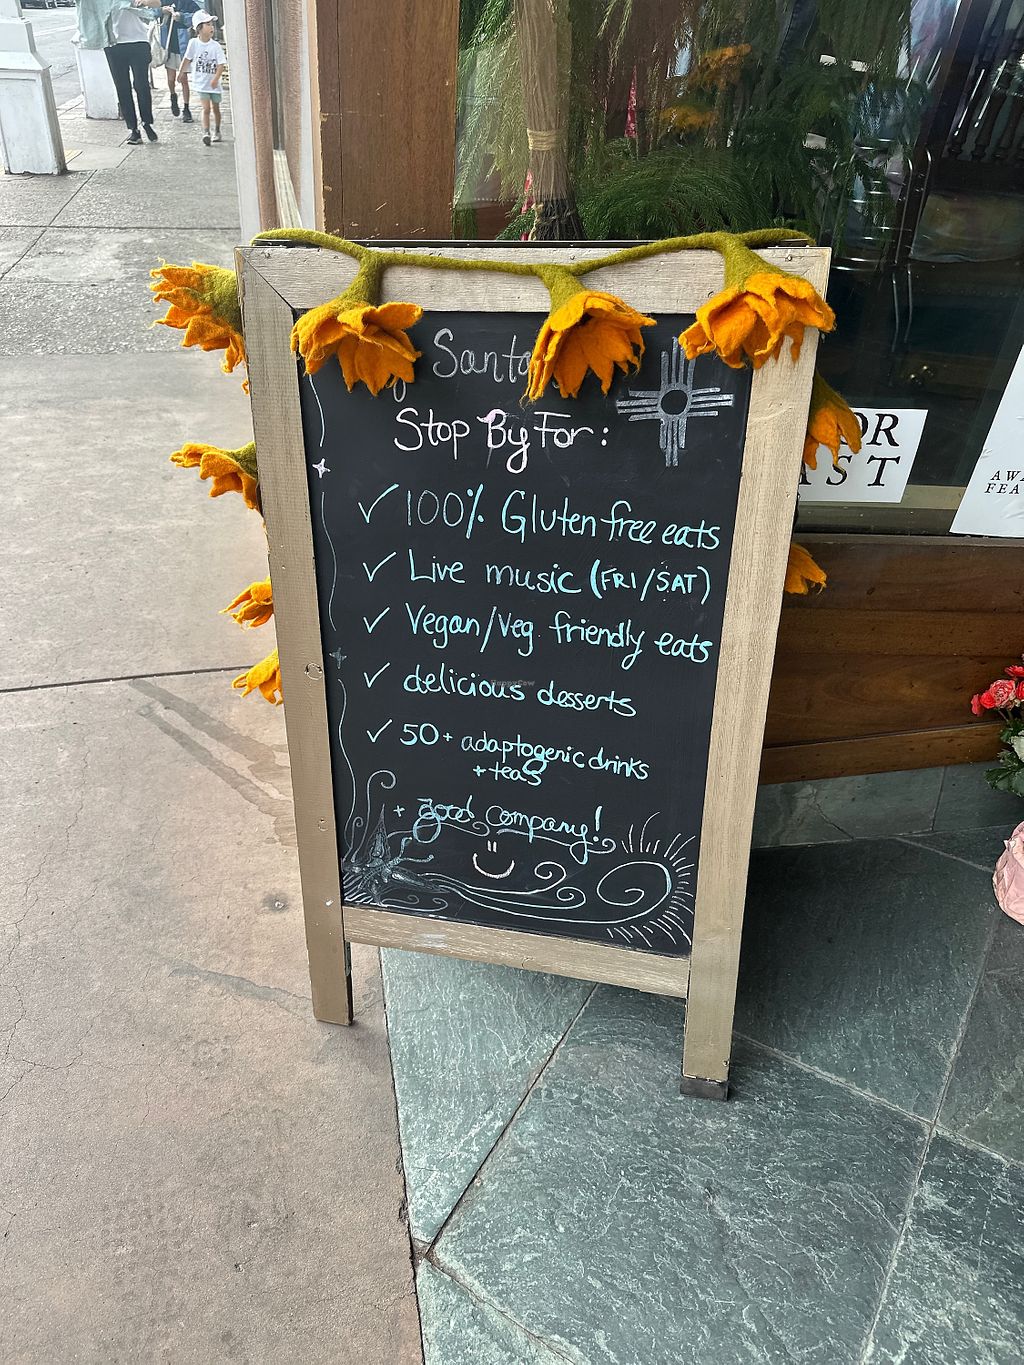 Santa
Stop By For:
✓ 100% Gluten free eats
✓ Live music (FRI/SAT)
✓ Vegan/Veg. friendly eats
✓ delicious desserts
✓ 50+ adaptogenic drinks
+ teas
+ good company!
HappyCow
OR
ST
AW
FEA